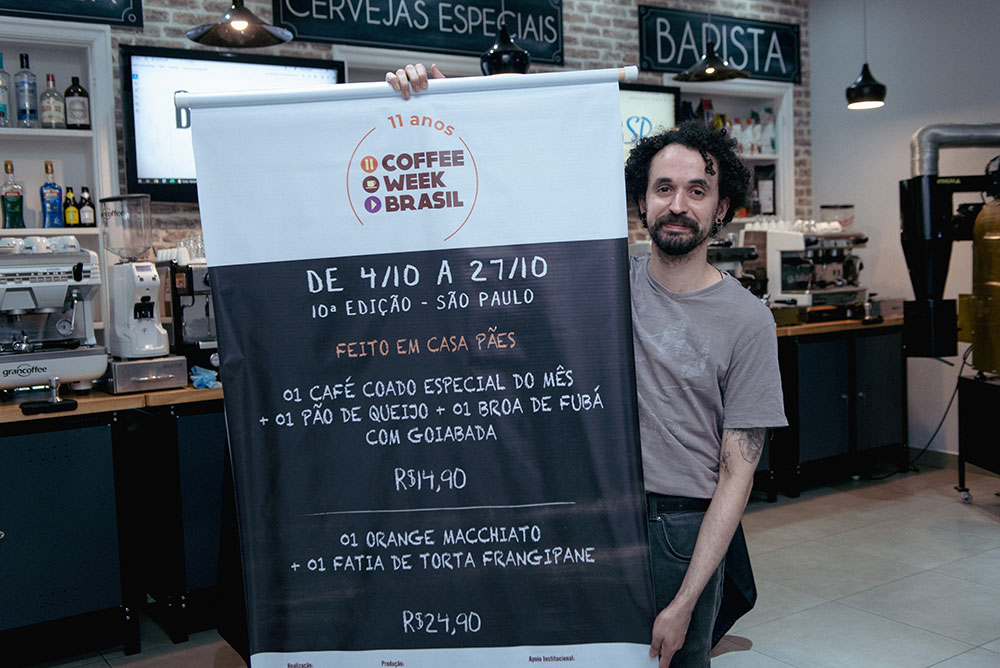 CERVEJAS ESPECIAIS
BARISTA
D
SP
11 anos
11 COFFEE
WEEK
BRASIL
DE 4/10 A 27/10
10ª EDIÇÃO - SÃO PAULO
FEITO EM CASA PÃES
01 CAFÉ COADO ESPECIAL DO MÊS
+ 01 PÃO DE QUEIJO + 01 BROA DE FUBÁ
COM GOIABADA
R$14,90
01 ORANGE MACCHIATO
+ 01 FATIA DE TORTA FRANGIPANE
R$24,90
Realização:
Produção:
Apoio Institucional:
grancoffee